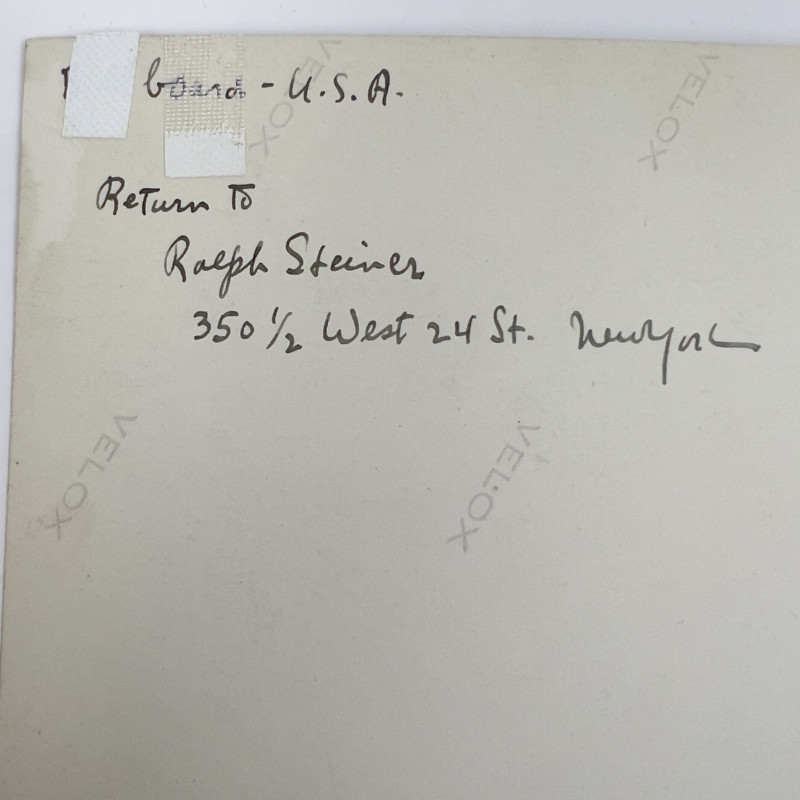 board - U.S.A.
Return To
Ralph Steiner
350 1/2 West 24 St. New York
VELOX
VELOX
VELOX
VELOX